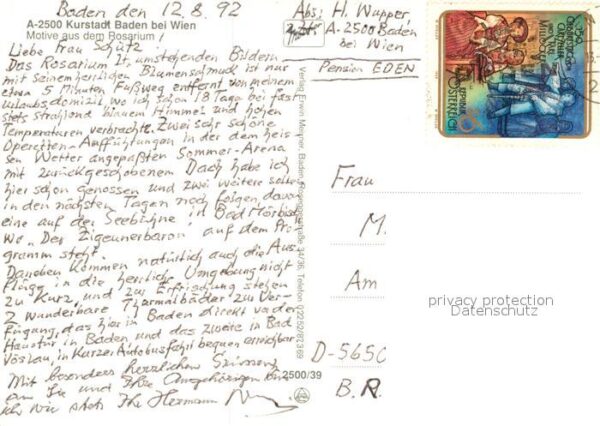 Baden den 12.8.92
A-2500 Kurstadt Baden bei Wien
Motive aus dem Rosarium
Liebe Frau Schütz!
Das Rosarium lt. umstehenden Bildern
mit seinem herrlichen Blumenschmuck ist nur
etwa 5 Minuten Fußweg entfernt von meinem
Urlaubsdomizil, wo ich schon 18 Tage bei fast
stets strahlend blauem Himmel und hohen
Temperaturen verbrachte. Zwei sehr schöne
Operetten-Aufführungen in der dem heis-
sen Wetter angepaßten Sommer-Arena
mit zurückgeschobenem Dach habe ich
hier schon genossen und zwei weitere sollen
in den nächsten Tagen noch folgen, davon
eine auf der Seebühne in Bad Mörbisch
wo "Der Zigeunerbaron" auf dem Pro-
gramm steht.
Daneben kommen natürlich auch die Aus-
flüge in die herrliche Umgebung nicht
zu kurz, und zur Erfrischung stehen
2 wunderbare Thermalbäder zur Ver-
fügung, das hier in Baden direkt vor der
Haustür in Baden und das zweite in Bad
Vöslau, in kurzer Autobusfahrt bequem erreichbar
Mit besonders herzlichen Grüssen
an Sie und Ihre Angehörigen bin
ich wie stets Ihr Hermann
Verlag Erwin Meixner, Baden, 34/36, Telefon 02252/82369
2500/39
Abs: H. Wupper,
A-2500 Baden
bei Wien
Pension EDEN
ÖSTERREICH
Frau
M.
Am
D-5650
B.R.
privacy protection
Datenschutz